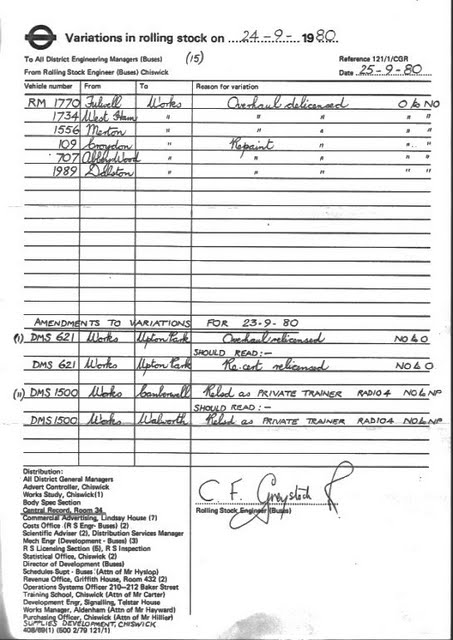 Variations in rolling stock on 24-9- 1980
To All District Engineering Managers (Buses) (15) Reference 121/1/CGR
From Rolling Stock Engineer (Buses) Chiswick Date 25-9-80
Vehicle number From To Reason for variation
RM 1770 Fulwell Works Overhaul delicensed O to NO
1734 West Ham " " " " "
1556 Merton " " " " "
109 Croydon " Repaint " " "
707 Abbey Wood " " " " "
1989 Dalston " " " " "
AMENDMENTS TO VARIATIONS FOR 23-9-80
(i) DMS 621 Works Upton Park Overhaul relicensed NO to O
SHOULD READ:-
DMS 621 Works Upton Park Re.cert relicensed NO to O
(ii) DMS 1500 Works Camberwell Relsd as PRIVATE TRAINER RADIO 4 NO to NP
SHOULD READ:-
DMS 1500 Works Walworth Relsd as PRIVATE TRAINER RADIO 4 NO to NP
Distribution:
All District General Managers
Advert Controller, Chiswick
Works Study, Chiswick(1)
Body Spec Section
Central Record, Room 34
Commercial Advertising, Lindsay House (7)
Costs Office (R S Engr- Buses) (2)
Scientific Adviser (2), Distribution Services Manager
Mech Engr (Development - Buses) (3)
R S Licensing Section (5), R S Inspection
Statistical Office, Chiswick (2)
Director of Development (Buses)
Schedules Supt - Buses (Attn of Mr Hyslop)
Revenue Office, Griffith House, Room 432 (2)
Operations Systems Officer 210-212 Baker Street
Training School, Chiswick (Attn of Mr Carter)
Development Engr, Signalling, Telstar House
Works Manager, Aldenham (Attn of Mr Hayward)
Purchasing Officer, Chiswick (Attn of Mr Hillier)
SUPPLIES DEVELOPMENT, CHISWICK
408/89(1) (500 2/79 121/1)
C F Greystock
Rolling Stock Engineer (Buses)